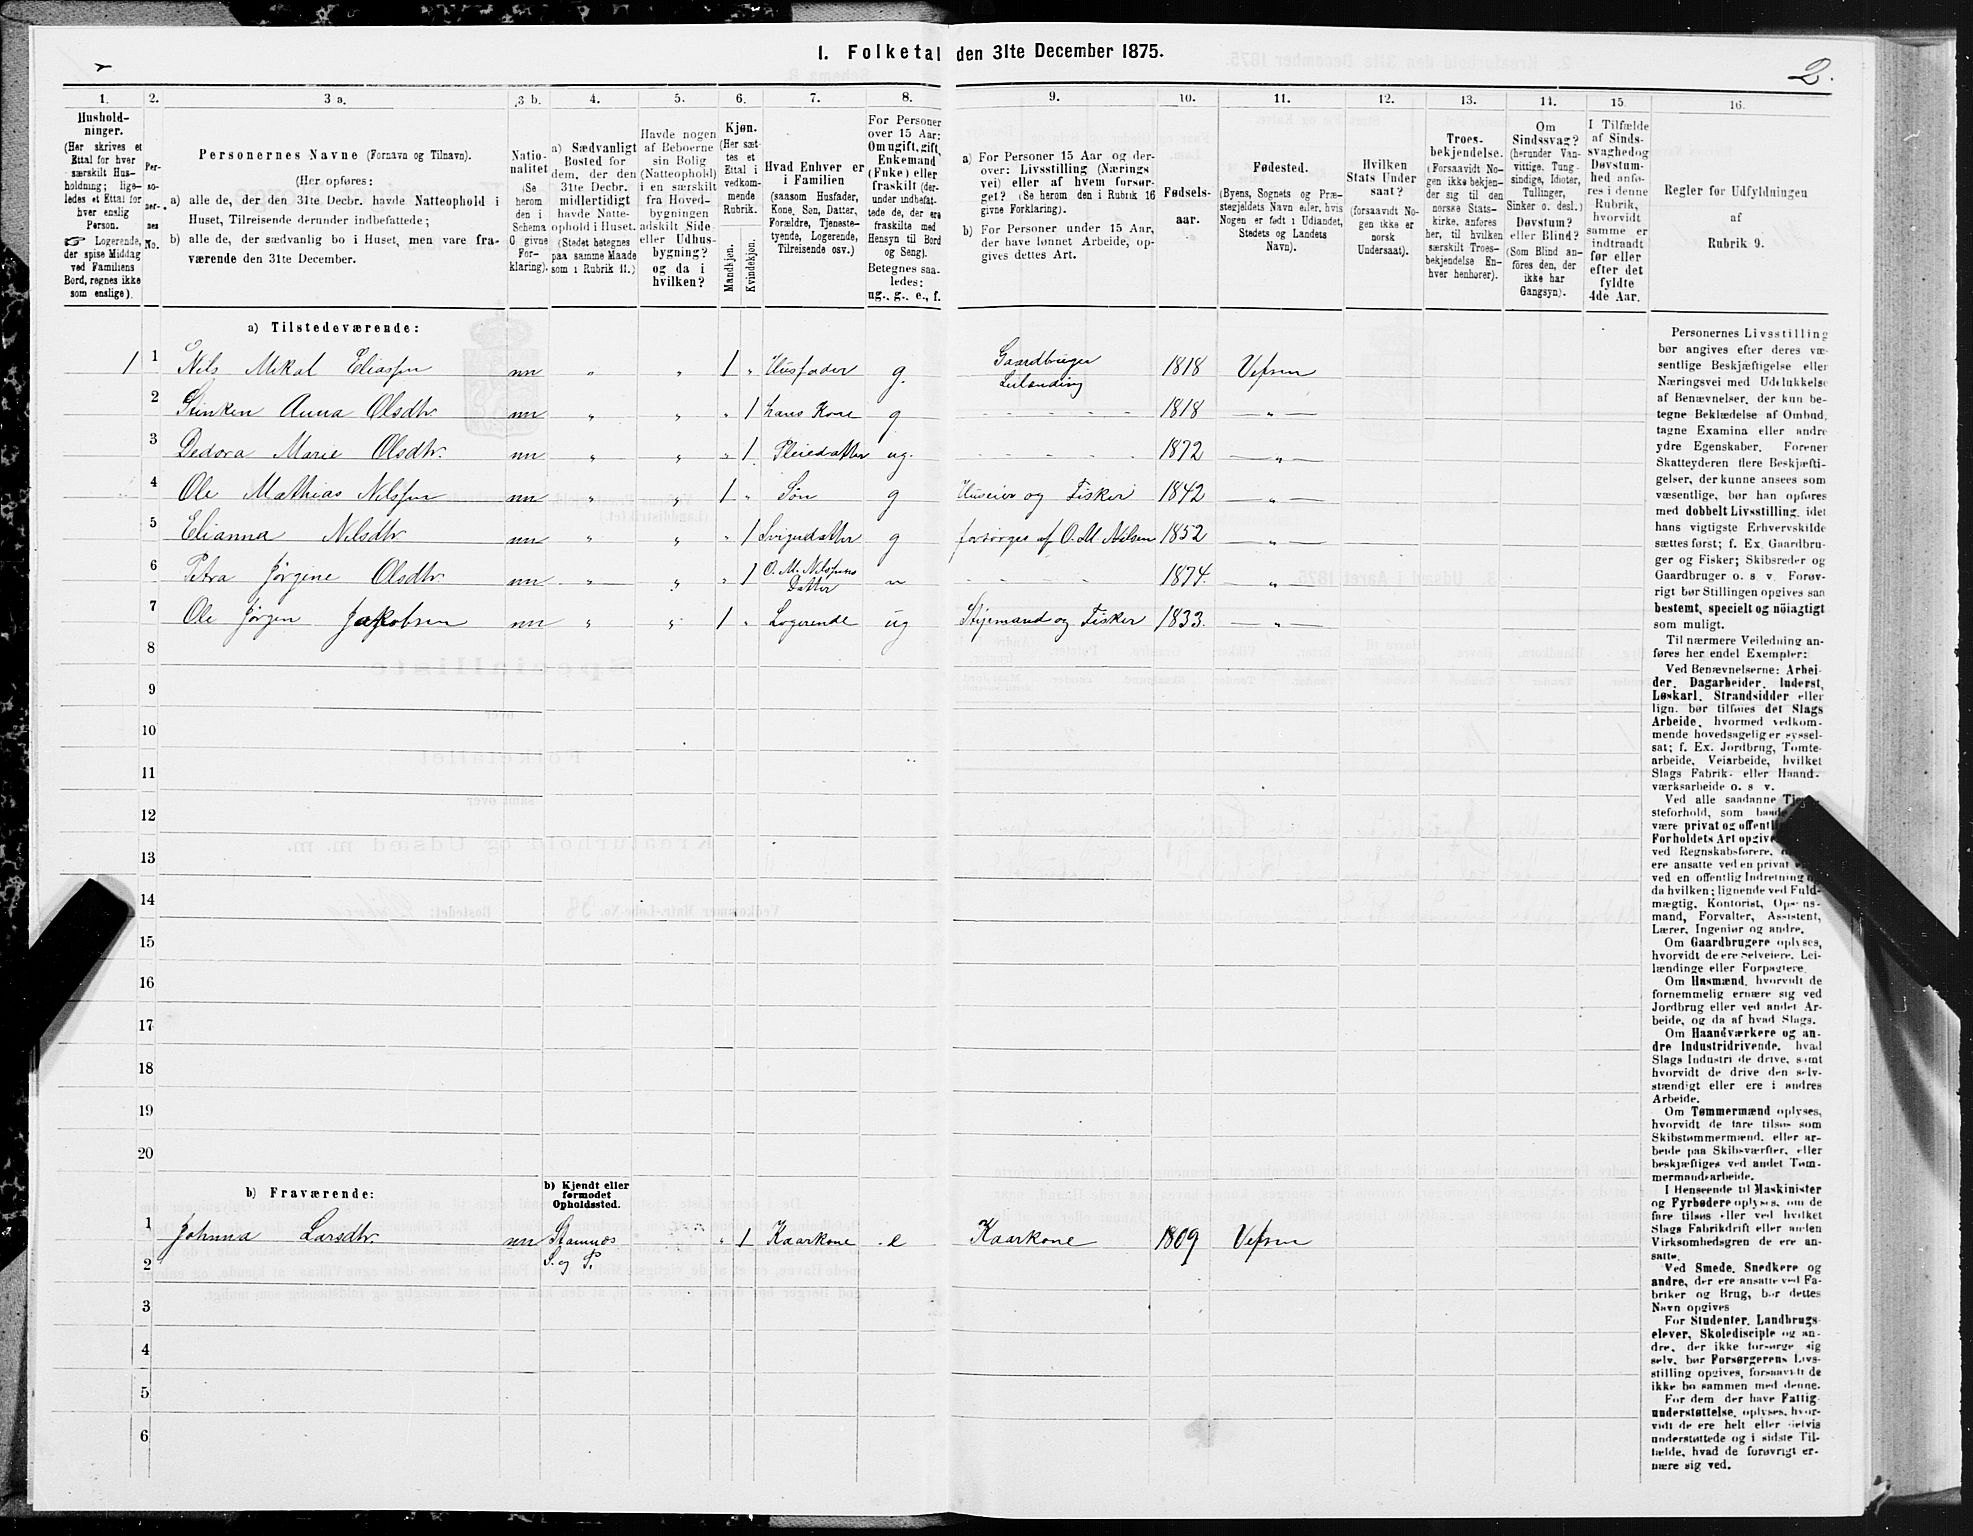 1. Folketal den 31te December 1875.
2.
1. 2. 3 a. 3 b. 4. 5. 6. 7. 8. 9. 10. 11. 12. 13. 14. 15. 16.
Hushold-
ninger.
(Her skrives et
Ettal for hver
særskilt Hus-
holdning; lige-
ledes et Ettal for
hver enslig
Person.
☞ Logerende,
der spise Middag
ved Familiens
Bord, regnes ikke
som enslige).
Per-
so-
ner-
nes
No.
Personernes Navne (Fornavn og Tilnavn).
(Her opføres:
a) alle de, der den 31te Decbr. havde Natteophold i
Huset, Tilreisende derunder indbefattede;
b) alle de, der sædvanlig bo i Huset, men vare fra-
værende den 31te December.
Natio-
nalitet
(Se
herom
den i
Schema
G givne
For-
klaring).
a) Sædvanligt
Bosted for
dem, der den
31te Decbr.
midlertidigt
havde Natte-
ophold i Huset.
(Stedet betegnes
paa samme Maade
som i Rubrik 11.)
Havde nogen
af Beboerne
sin Bolig
(Natteophold)
i en særskilt
fra Hoved-
bygningen
adskilt Side-
eller Udhus-
bygning?
og da i
hvilken?
Kjøn.
(Her sæt-
tes et
Ettal i
vedkom-
mende
Rubrik.
Mandkjøn.
Kvindekjøn.
Hvad Enhver er
i Familien
(saasom Husfader,
Kone, Søn, Datter,
Forældre, Tjeneste-
tyende, Logerende,
Tilreisende osv.)
For Personer
over 15 Aar:
Om ugift, gift,
Enkemand
(Enke) eller
fraskilt (der-
under indbefat-
tede de, der ere
fraskilte med
Hensyn til Bord
og Seng).
Betegnes saa-
ledes:
ug., g., e., f.
a) For Personer 15 Aar og der-
over: Livsstilling (Nærings
vei) eller af hvem forsør-
get? (Se herom den i Rubrik 16
givne Forklaring).
b) For Personer under 15 Aar,
der have lønnet Arbeide, op-
gives dettes Art.
Fødsels-
aar.
Fødested.
(Byens, Sognets og Præ-
stegjeldets Navn eller, hvis
Nogen er født i Udlandet,
Stedets og Landets
Navn).
Hvilken
Stats Under
saat?
(forsaavidt No-
gen ikke er
norsk
Undersaat).
Troes-
bekjendelse.
(Forsaavidt No-
gen ikke bekjen-
der sig til den
norske Stats-
kirke, anføres
her, til hvilken
særskilt Troes-
bekjendelse En-
hver henhører).
Om
Sindssvag?
(herunder Van-
vittige, Tung-
sindige, Idioter,
Tullinger,
Sinker o. desl.)
Døvstum?
eller Blind?
(Som Blind an-
føres den, der
ikke har
Gangsyn).
I Tilfælde
af Sinds-
svaghed og
Døvstum-
hed anfø-
res i denne
Rubrik,
hvorvidt
samme er
indtraadt
før eller
efter det
fyldte
4de Aar.
Regler for Udfyldningen
af
Rubrik 9.
a) Tilstedeværende:
1 1 Nils Mikal Eliassen nn „ „ 1 „ Husfader g. Gaardbruger Leilænding 1818 Vefsen
2 Stinken Anna Olsdtr nn „ „ „ 1 hans Kone g 1818 — „ —
3 Dedora Marie Olsdtr. nn „ „ „ 1 Pleiedatter ug. 1872 — „ —
4 Ole Mathias Nilssen nn „ „ 1 „ Søn g Huseier og Fisker 1842 — „ —
5 Elianna Nilsdtr nn „ „ „ 1 Svigerdatter g forsørges af O. M. Nilsen 1852 — „ —
6 Petra Jørgine Olsdtr. nn „ „ „ 1 O. M. Nilssens Datter 1874. — „ —
7 Ole Jørgen Jakobsen nn „ „ 1 „ Logerende ug Styrmand og Fisker 1833. — „ —
8
9
10
11
12
13
14
15
16
17
18
19
20
b) Fraværende:
b) Kjendt eller
formodet
Opholdssted.
1 Johnna Larsdtr nn Stamnæs „ 1 Kaarkone e Kaarkone 1809 Vefsen
2 S. og P.
3
4
5
6
Personernes Livsstilling
bør angives efter deres væ-
sentlige Beskjæftigelse eller
Næringsvei med Udelukkelse
af Benævnelser, der kun be-
tegne Beklædelse af Ombud,
tagne Examina eller andre
ydre Egenskaber. Forener
Skatteyderen flere Beskjæfti-
gelser, der kunne ansees som
væsentlige, bør han opføres
med dobbelt Livsstilling, idet
hans vigtigste Erhvervskilde
sættes først; f. Ex. Gaardbru-
ger og Fisker; Skibsreder og
Gaardbruger o. s. v. Forøv-
rigt bør Stillingen opgives saa
bestemt, specielt og nøiagtigt
som muligt.
Til nærmere Veiledning an-
føres her endel Exempler:
Ved Benævnelserne: Arbei-
der, Dagarbeider, Inderst,
Løskarl, Strandsidder eller
lign. bør tilføies det Slags
Arbeide, hvormed vedkom-
mende hovedsagelig er syssel-
sat; f. Ex. Jordbrug, Tomte-
arbeide, Veiarbeide, hvilket
Slags Fabrik- eller Haand-
værksarbeide o. s. v.
Ved alle saadanne
steforhold, som
være privat og
Forholdets Art
ved Regnskabsførere,
ere ansatte ved en privat
ved en offentlig Indretning
da hvilken; lignende ved Fuld-
mægtig, Kontorist, Opsyns-
mand, Forvalter, Assistent,
Lærer, Ingeniør og andre.
Om Gaardbrugere oplyses,
hvorvidt de ere Selveiere, Lei-
lændinge eller Forpagtere.
Om Husmænd, hvorvidt de
fornemmelig ernære sig ved
Jordbrug eller ved andet Ar-
beide, og da af hvad Slags.
Om Haandværkere og an-
dre Industridrivende, hvad
Slags Industri de drive, samt
hvorvidt de drive den selv-
stændigt eller ere i andres
Arbeide.
Om Tømmermænd oplyses,
hvorvidt de fare tilsøs som
Skibstømmermænd, eller ar-
beide paa Skibsværfter, eller
beskjæftiges ved andet Tøm-
mermandsarbeide.
I Henseende til Maskinister
og Fyrbødere oplyses, om de
fare tilsøs eller ved hvilket
Slags Fabrikdrift eller anden
Virksomhedsgren de ere an-
satte.
Ved Smede, Snedkere og
andre, der ere ansatte ved Fa-
briker og Brug, bør dettes
Navn opgives
For Studenter, Landbrugs-
elever, Skoledisciple og an-
dre, der ikke forsørge sig
selv, bør Forsørgerens Livs-
stilling opgives, forsaavidt de
ikke bo sammen med denne.
For dem, der have Fattig-
understøttelse, oplyses, hvor-
vidt de ere helt eller delvis
understøttede og i sidste Til-
fælde, hvad de forøvrigt er-
nære sig ved.